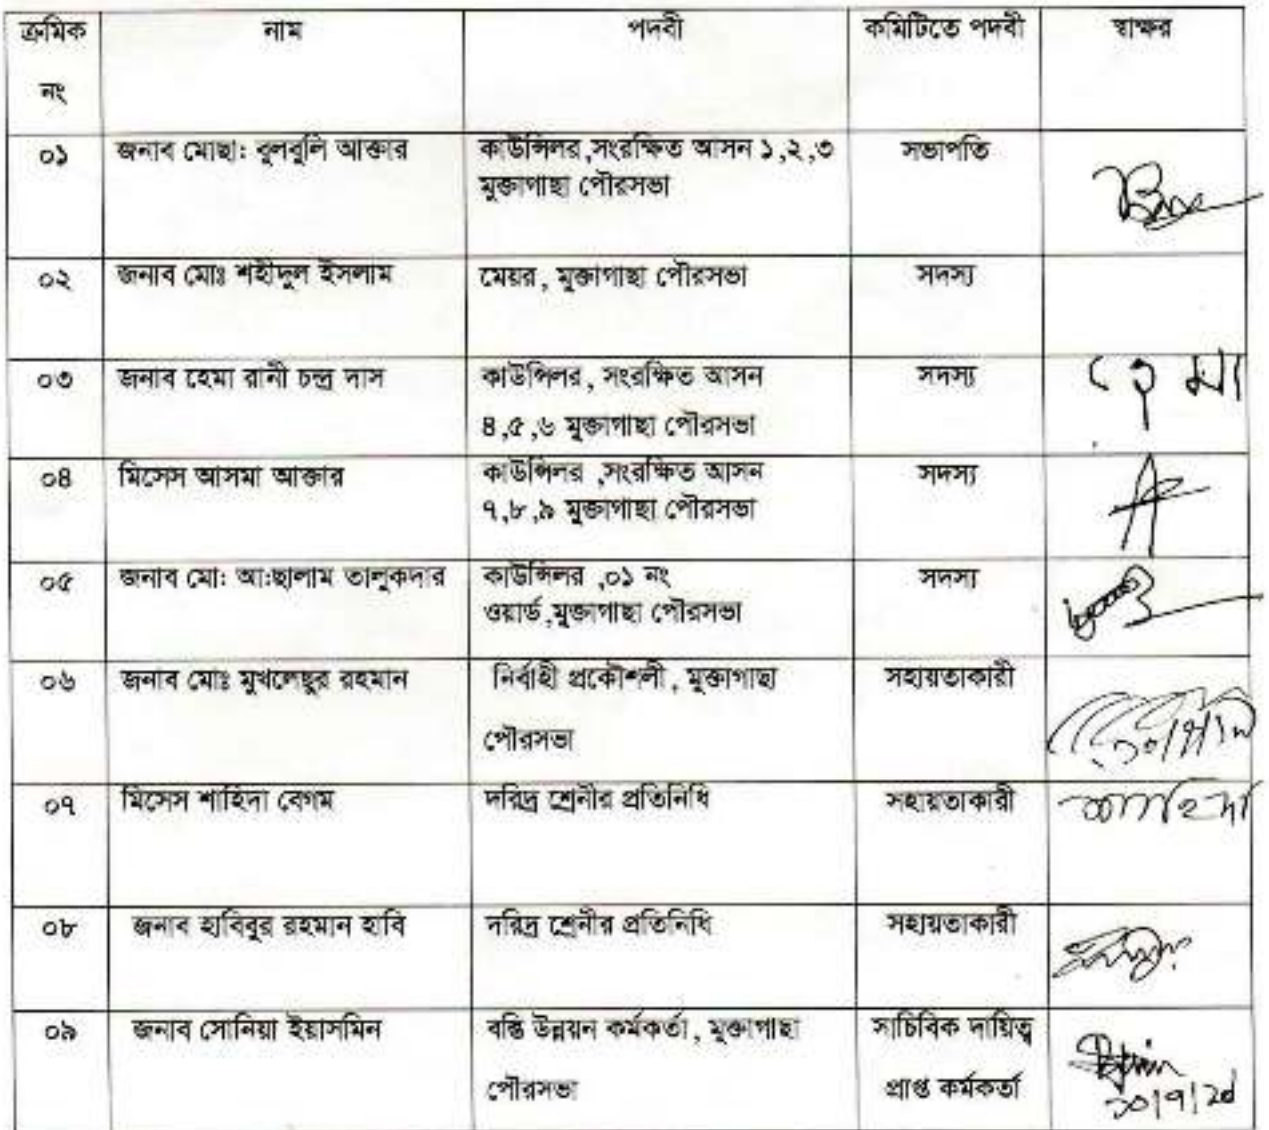 ক্রমিক নং নাম পদবী কমিটিতে পদবী স্বাক্ষর
০১ জনাব মোছা: বুলবুলি আক্তার কাউন্সিলর,সংরক্ষিত আসন ১,২,৩ সভাপতি
মুক্তাগাছা পৌরসভা
০২ জনাব মোঃ শহীদুল ইসলাম মেয়র, মুক্তাগাছা পৌরসভা সদস্য
০৩ জনাব হেমা রানী চন্দ্র দাস কাউন্সিলর, সংরক্ষিত আসন সদস্য হেমা
৪,৫,৬ মুক্তাগাছা পৌরসভা
০৪ মিসেস আসমা আক্তার কাউন্সিলর ,সংরক্ষিত আসন সদস্য
৭,৮,৯ মুক্তাগাছা পৌরসভা
০৫ জনাব মো: আ:ছালাম তালুকদার কাউন্সিলর ,০১ নং সদস্য
ওয়ার্ড,মুক্তাগাছা পৌরসভা
০৬ জনাব মোঃ মুখলেছুর রহমান নির্বাহী প্রকৌশলী, মুক্তাগাছা সহায়তাকারী
পৌরসভা
০৭ মিসেস শাহিদা বেগম দরিদ্র শ্রেনীর প্রতিনিধি সহায়তাকারী শাহিদা
০৮ জনাব হাবিবুর রহমান হাবি দরিদ্র শ্রেনীর প্রতিনিধি সহায়তাকারী
০৯ জনাব সোনিয়া ইয়াসমিন বস্তি উন্নয়ন কর্মকর্তা, মুক্তাগাছা সাচিবিক দায়িত্ব
পৌরসভা প্রাপ্ত কর্মকর্তা